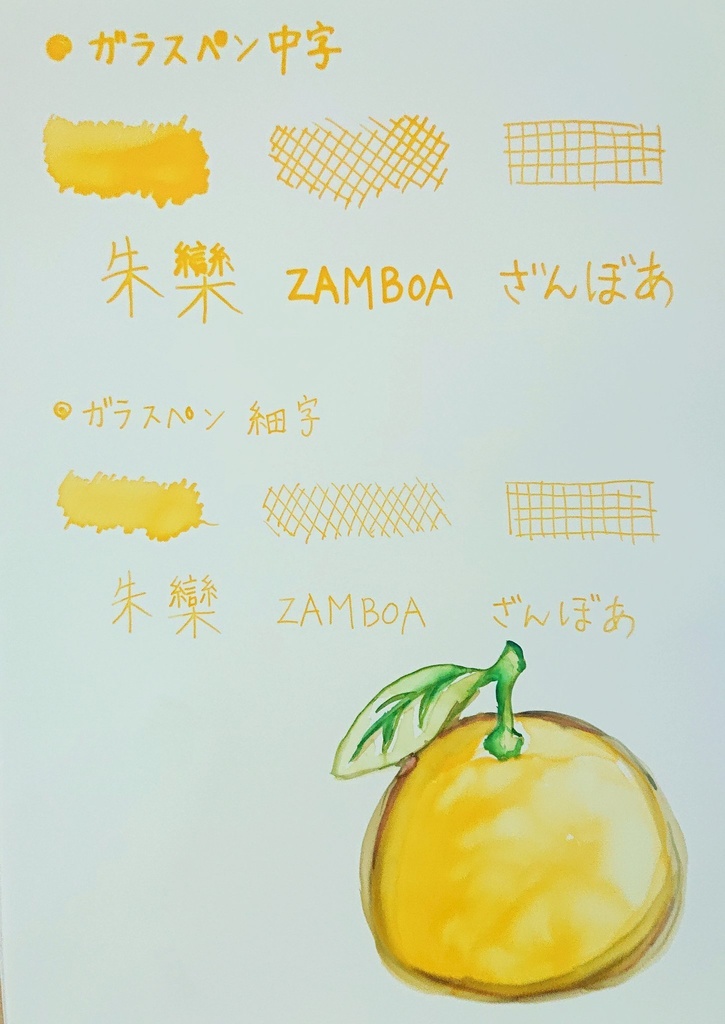 ● ガラスペン中字
朱欒 ZAMBOA ざんぼあ
◉ ガラスペン 細字
朱欒 ZAMBOA ざんぼあ